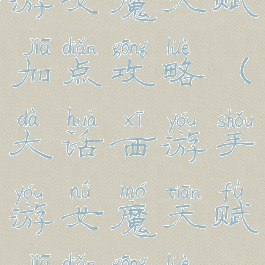 游女魔天赋
jiā diǎn gōng lüè
加点攻略（
dà huà xī yóu shǒu
大话西游手
yóu nǚ mó tiān fù
游女魔天赋
jiā diǎn gōng lüè